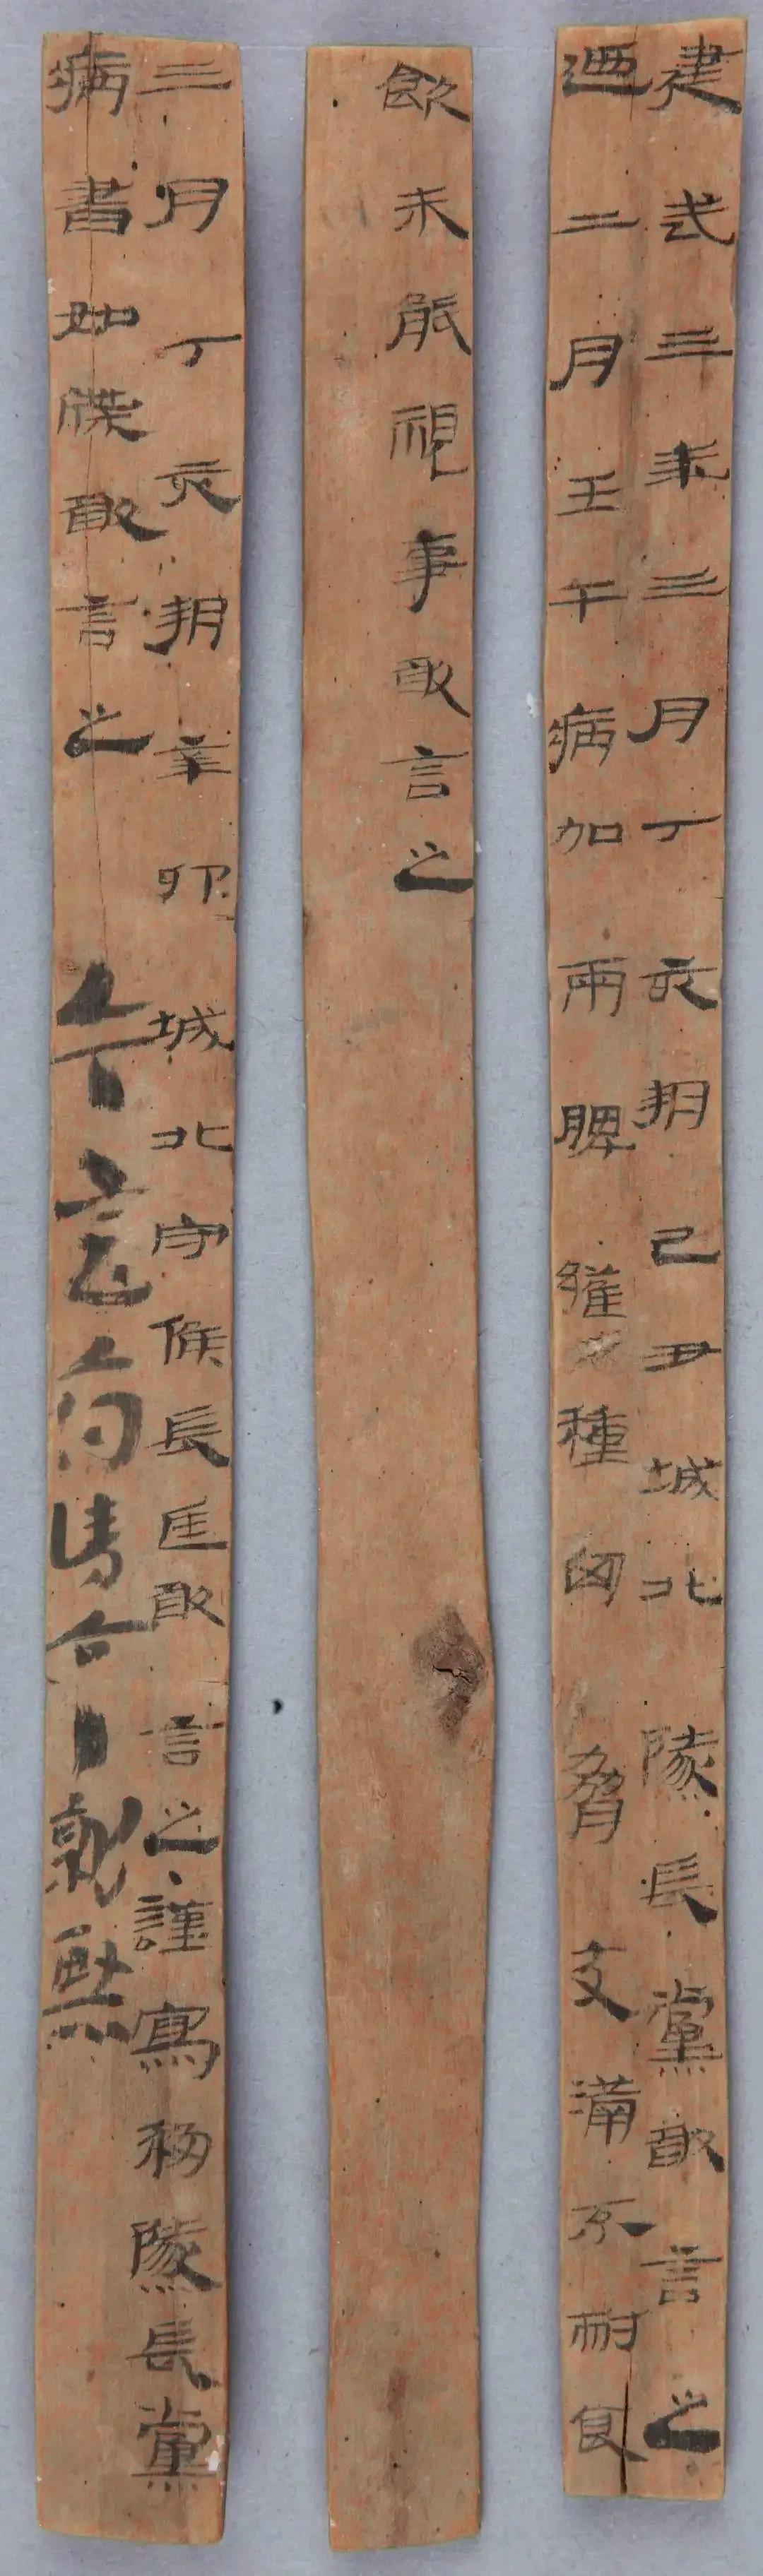 建武三年三月丁亥朔己丑城北隧長黨敢言之
迺二月壬午病加兩脾雍種匈脅支滿不耐食
飲未能視事敢言之
三月丁亥朔辛卯城北守候長匡敢言之謹寫移隧長黨
病書如牒敢言之 今言府請令就醫